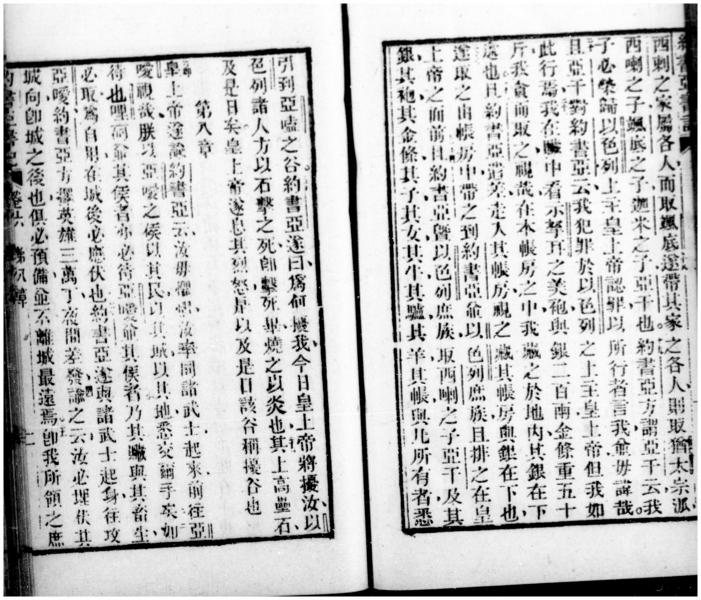 約書亞書記
西喇之家屬各人而取颯底遂帶其家之各人則取猶太宗派
西喇之子颯底之子迦米之子亞干也約書亞方謂亞干云我
子必榮歸以色列上主皇上帝認罪以所行者言我爾毋諱哉
且亞干對約書亞云我犯罪於以色列之上主皇上帝但我如
此行焉我在贓中看示拏耳之美袍與銀二百兩金條重五十
斤我貪而取之視哉在本帳房之中我藏之於地內其銀在下
遠也且約書亞遣差走入其帳房視之藏其帳房與銀在下也
遂取之由帳房中帶之到約書亞並以色列庶族且排之在皇
上帝之面前且約書亞暨以色列庶族取西喇之子亞干及其
銀其袍其金條其子其女其牛其驢其羊其帳與凡所有者悉
引到亞嘘之谷約書亞遂曰爲何擾我今日皇上帝將擾汝以
色列諸人方以石擊之死即擊死畢燒之以炎也其上高壘石
及是日矣皇上帝遂息其烈怒是以及是日該谷稱擾谷也
第八章
皇上帝遂諭約書亞云汝毋懼汝率同諸武士起來前往亞
噯視哉朕以亞噯之侯以其民以其城以其地悉交爾手矣如
待也哩 爾其侯者亦必待亞噯爾其侯者乃其贓與其畜生
必取爲自則在城後必應伏也約書亞遂與諸武士起身往攻
亞噯約書亞方擇英雄三萬丁夜間差發諭之云汝必埋伏其
城向即城之後也俱必預備並不離城最遠焉即我所領之庶
卷六 第八章